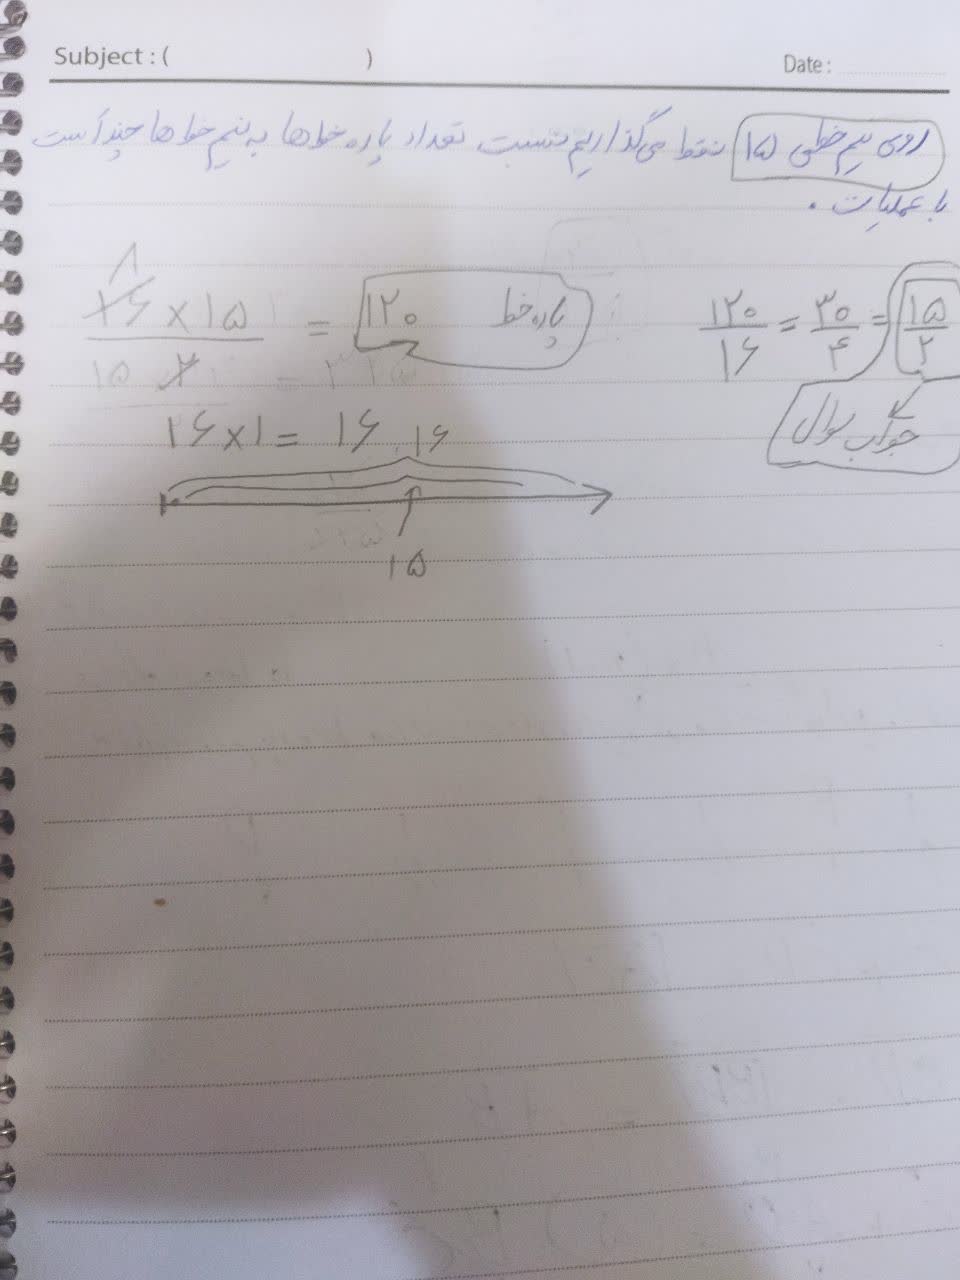 Subject : (                    )                    Date :
روی نیم خطی ۱۵ نقطه می‌گذاریم نسبت تعداد پاره خط‌ها به نیم خط‌ها چند است
با عملیات .
۸
۱۶ × ۱۵ / ۲ = ۱۲۰ پاره خط
۱۲۰ / ۱۶ = ۳۰ / ۴ = ۱۵ / ۲
جواب سوال
۱۶ × ۱ = ۱۶
۱۶
۱۵